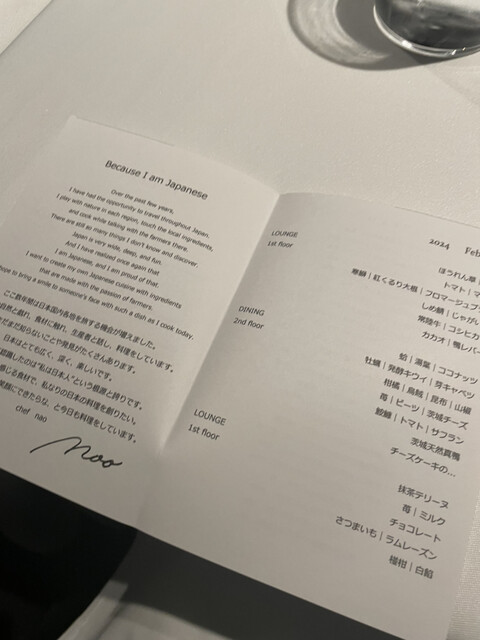 Because I am Japanese
Over the past few years,
I have had the opportunity to travel throughout Japan.
I play with nature in each region, touch the local ingredients,
and cook while talking with the farmers there.
There are still so many things I don't know and discover.
Japan is very wide, deep, and fun.
And I have realized once again that
I am Japanese, and I am proud of that.
I want to create my own Japanese cuisine with ingredients
that are made with the passion of farmers.
hope to bring a smile to someone's face with such a dish as I cook today.
ここ数年間は日本国内各地を旅する機会が増えました。
自然と戯れ、食材に触れ、生産者と話し、料理をしています。
まだまだ知らないことや発見がたくさんあります。
日本はとても広く、深く、楽しいです。
認識したのは"私は日本人"という根源と誇りです。
感じる食材で、私なりの日本の料理を創りたい。
笑顔にできたらな、と今日も料理をしています。
chef nao
nao
2024 Feb
LOUNGE
1st floor
ほうれん草
トマト｜マ
寒鰤｜紅くるり大根｜フロマージュブ
しめ鯖｜じゃがい
常陸牛｜コシヒカ
カカオ｜鴨レバー
DINING
2nd floor
蛤｜湯葉｜ココナッツ
牡蠣｜発酵キウイ｜芽キャベツ
柑橘｜烏賊｜昆布｜山椒
苺｜ビーツ｜茨城チーズ
鮟鱇｜トマト｜サフラン
茨城天然真鴨
チーズケーキの…
LOUNGE
1st floor
抹茶テリーヌ
苺｜ミルク
チョコレート
さつまいも｜ラムレーズン
椪柑｜白餡